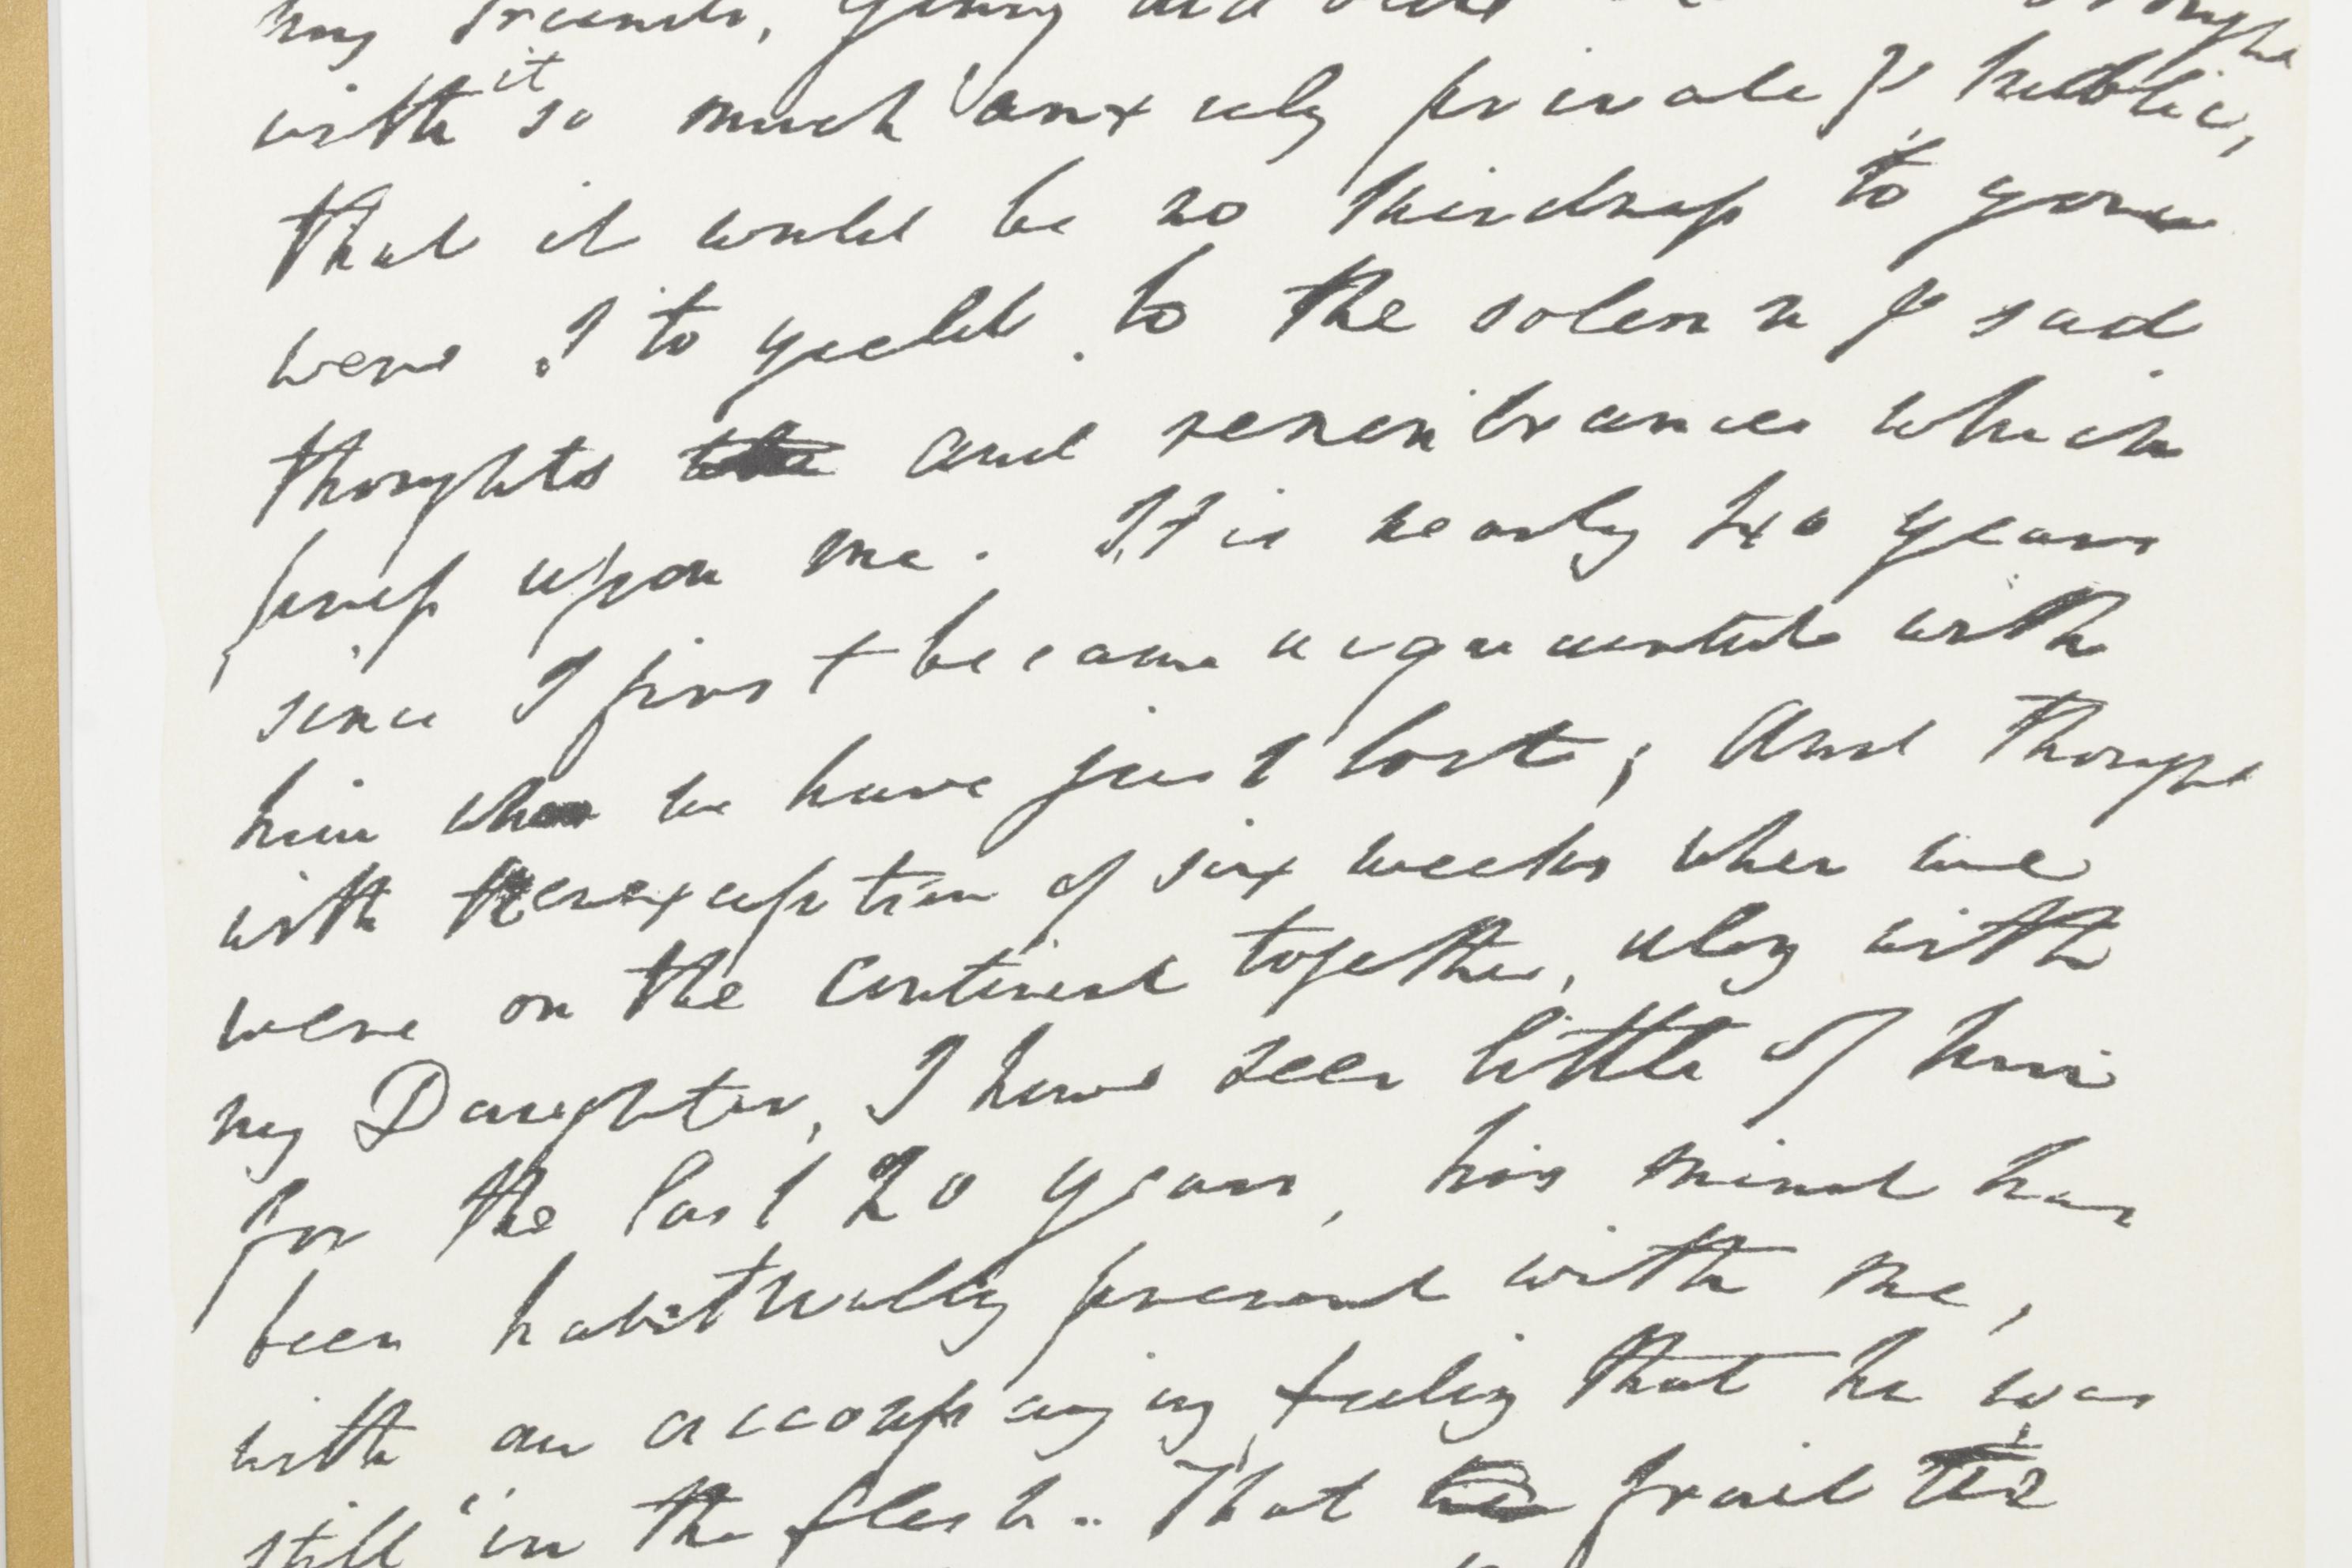 my friends, Going and brought
with it so much anxiety private & public,
that it would be no kindness to you
were I to yield to the solemn & sad
thoughts and remembrances which
press upon me. It is nearly 40 years
since I first became acquainted with
him who we have just lost; and though
with the exception of six weeks when we
were on the continent together, along with
my Daughter, I have seen little of him
for the last 20 years, his mind has
been habitually present with me,
with an accompanying feeling that he was
still in the flesh. That frail tie